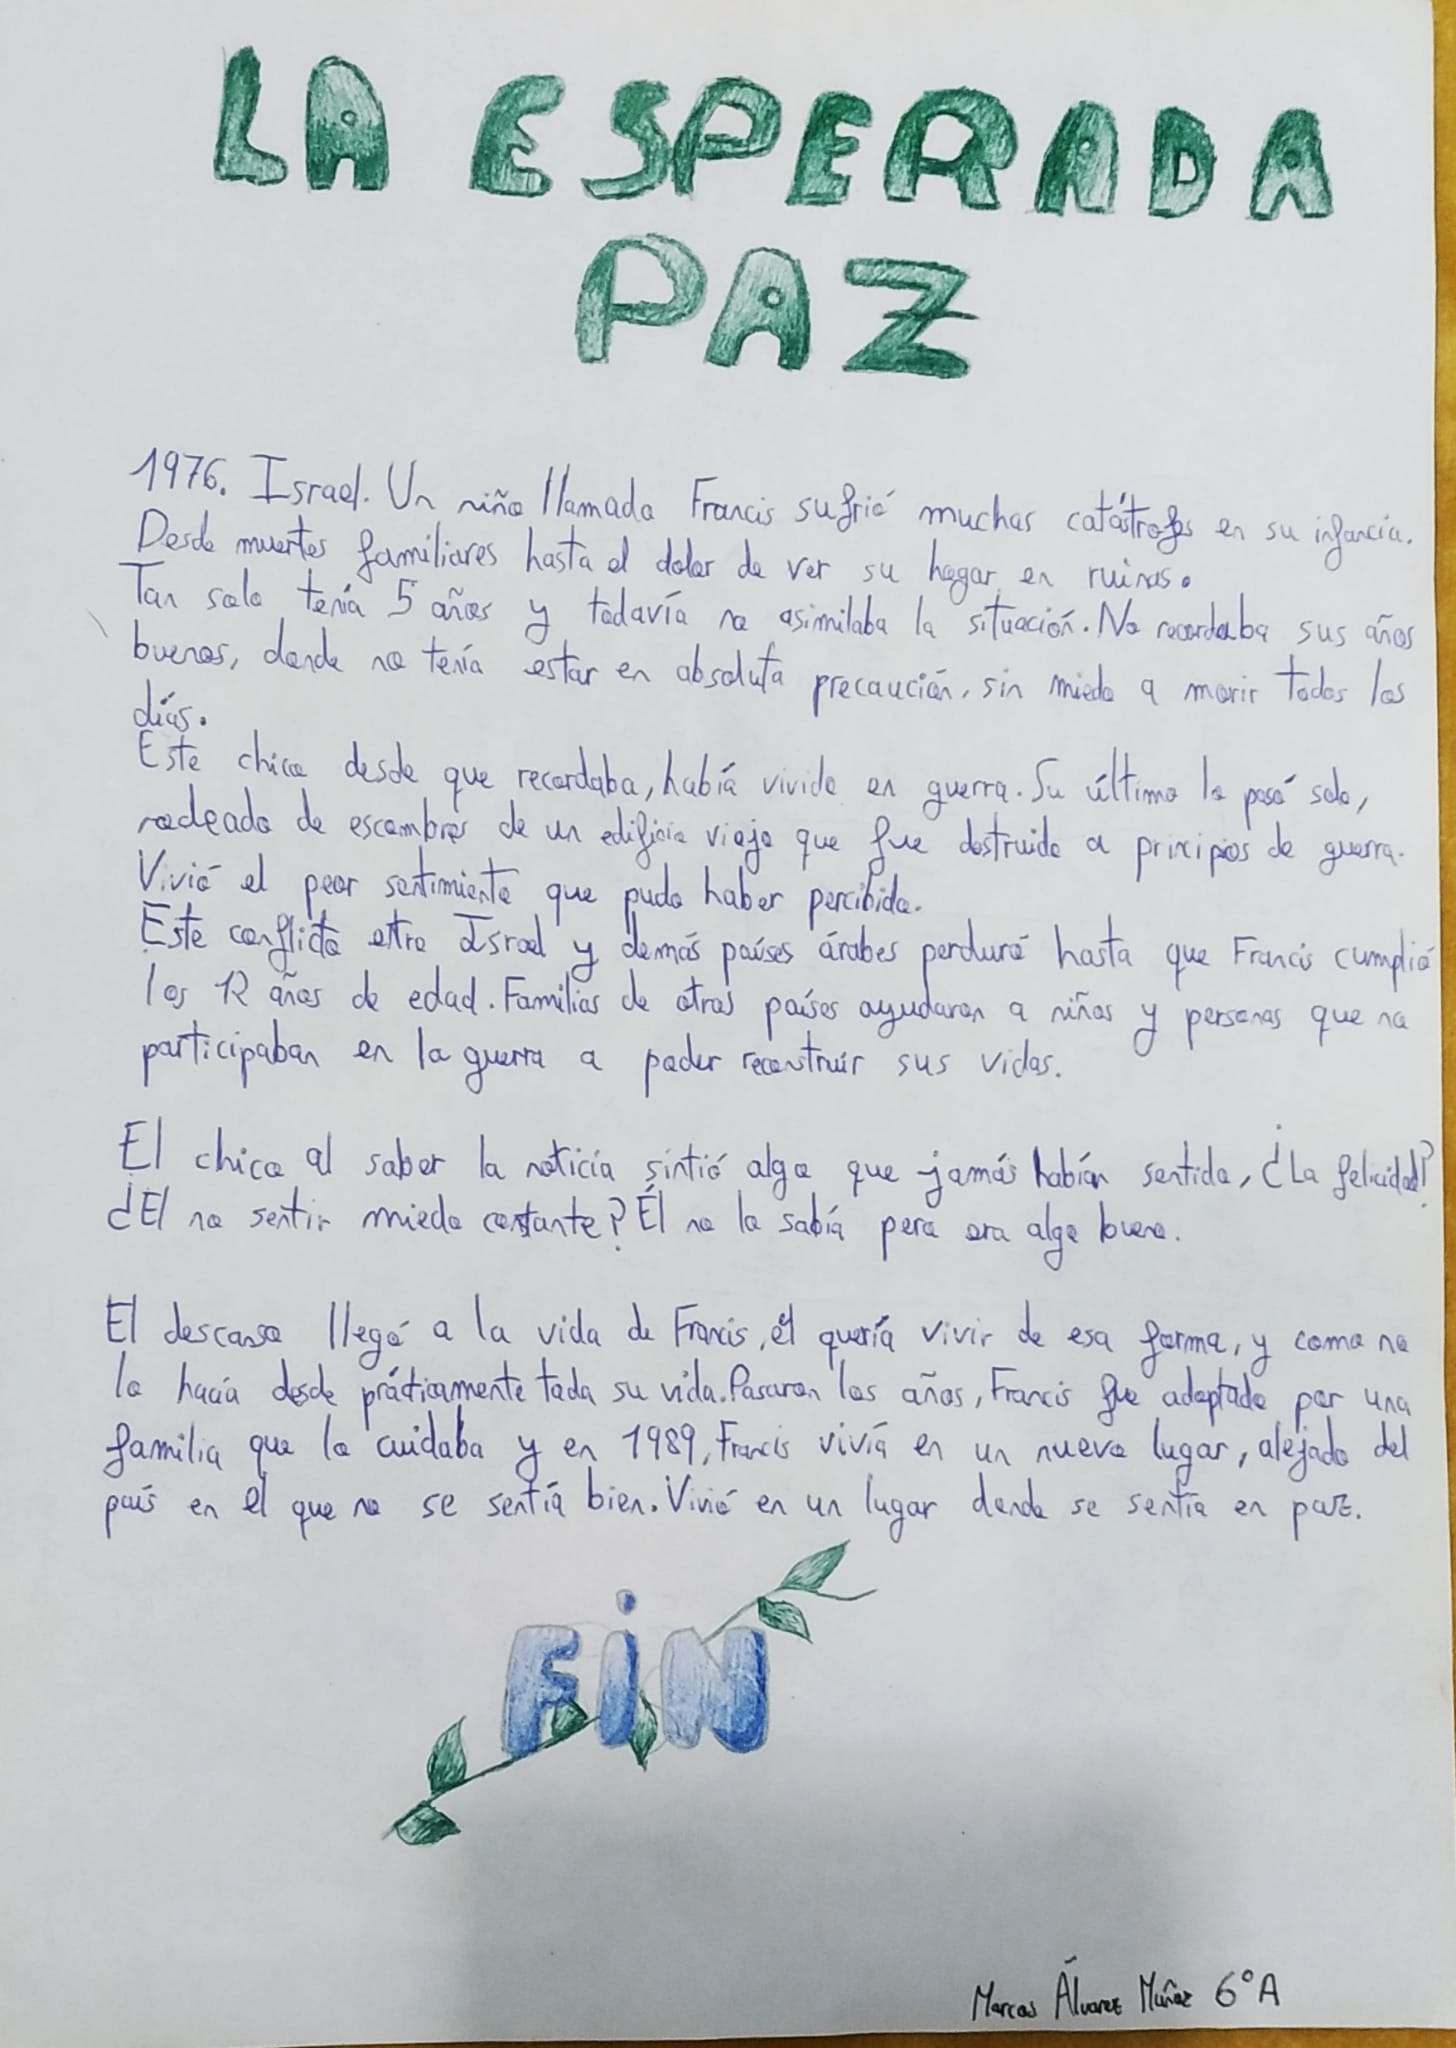 LA ESPERADA
PAZ
1976. Israel. Un niño llamado Francis sufrió muchas catástrofes en su infancia.
Desde muertes familiares hasta el dolor de ver su hogar en ruinas.
Tan solo tenía 5 años y todavía no asimilaba la situación. No recordaba sus años
buenos, donde no tenía estar en absoluta precaución, sin miedo a morir todos los
días.
Este chico desde que recordaba, había vivido en guerra. Su último lo pasó solo,
rodeado de escombros de un edificio viejo que fue destruido a principios de guerra.
Vivió el peor sentimiento que pudo haber percibido.
Este conflicto entre Israel y demás países árabes perduró hasta que Francis cumplió
los 12 años de edad. Familias de otros países ayudaron a niños y personas que no
participaban en la guerra a poder reconstruir sus vidas.
El chico al saber la noticia sintió algo que jamás habían sentido, ¿La felicidad?
¿El no sentir miedo constante? Él no lo sabía pero era algo bueno.
El descanso llegó a la vida de Francis, él quería vivir de esa forma, y como no
lo hacía desde prácticamente toda su vida. Pasaron los años, Francis fue adoptado por una
familia que lo cuidaba y en 1989, Francis vivía en un nuevo lugar, alejado del
país en el que no se sentía bien. Vivió en un lugar donde se sentía en paz.
FiN
Marcos Álvarez Muñoz 6°A